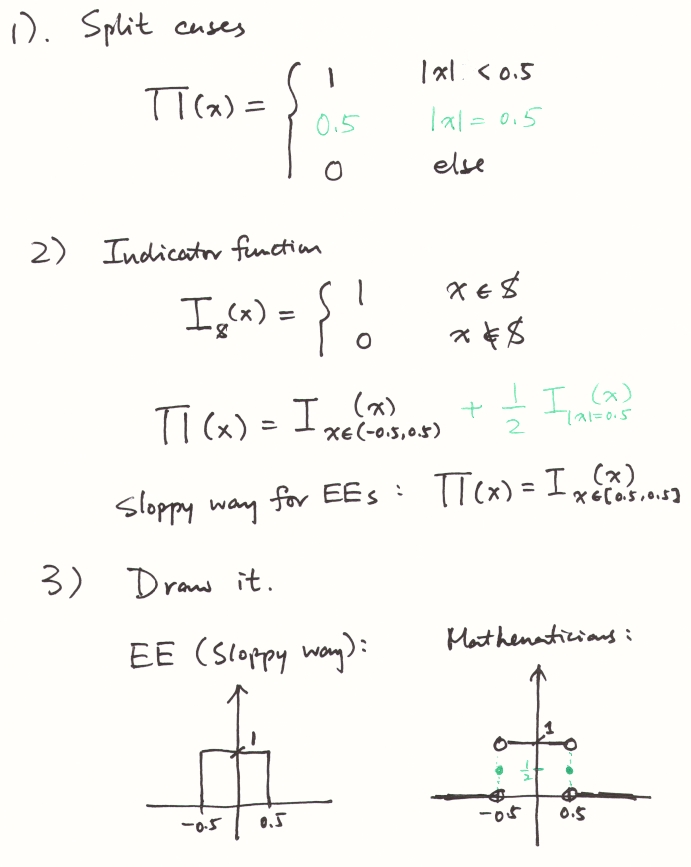 1). Split cases
∏(x) = { 1 |x| < 0.5
0.5 |x| = 0.5
0 else
2) Indicator function
I_$(x) = { 1 x ∈ $
0 x ∉ $
∏(x) = I_{x∈(-0.5,0.5)}(x) + 1/2 I_{|x|=0.5}(x)
Sloppy way for EEs : ∏(x) = I_{x∈[0.5,0.5]}(x)
3) Draw it.
EE (Sloppy way): Mathematicians :
1 1
1/2
-0.5 0.5 -0.5 0.5